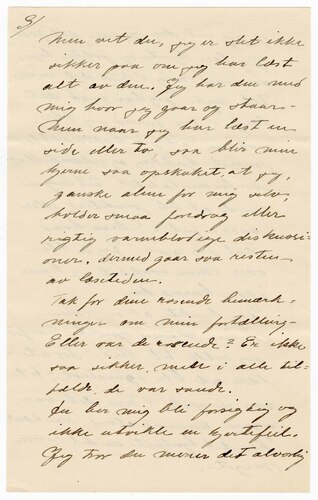 9/
Men vet du, jeg er slet ikke
sikker paa om jeg har læst
alt av den. Jeg har den med
mig hvor jeg gaar og staar -
Men naar jeg har læst en
side eller to saa blir min
hjerne saa opskaket, at jeg,
ganske alene for mig selv,
holder smaa foredrag eller
rigtig varmblodige diskussi-
oner. Dermed gaar saa resten
av læsetiden.
Tak for dine rosende bemærk-
ninger om min fortælling -
Eller var de rosende? Er ikke
saa sikker. Men i alle til-
fælde, de var sande.
Du ber mig bli forsigtig og
ikke utvikle en hjertefeil.
Jeg tror du mener det alvorlig